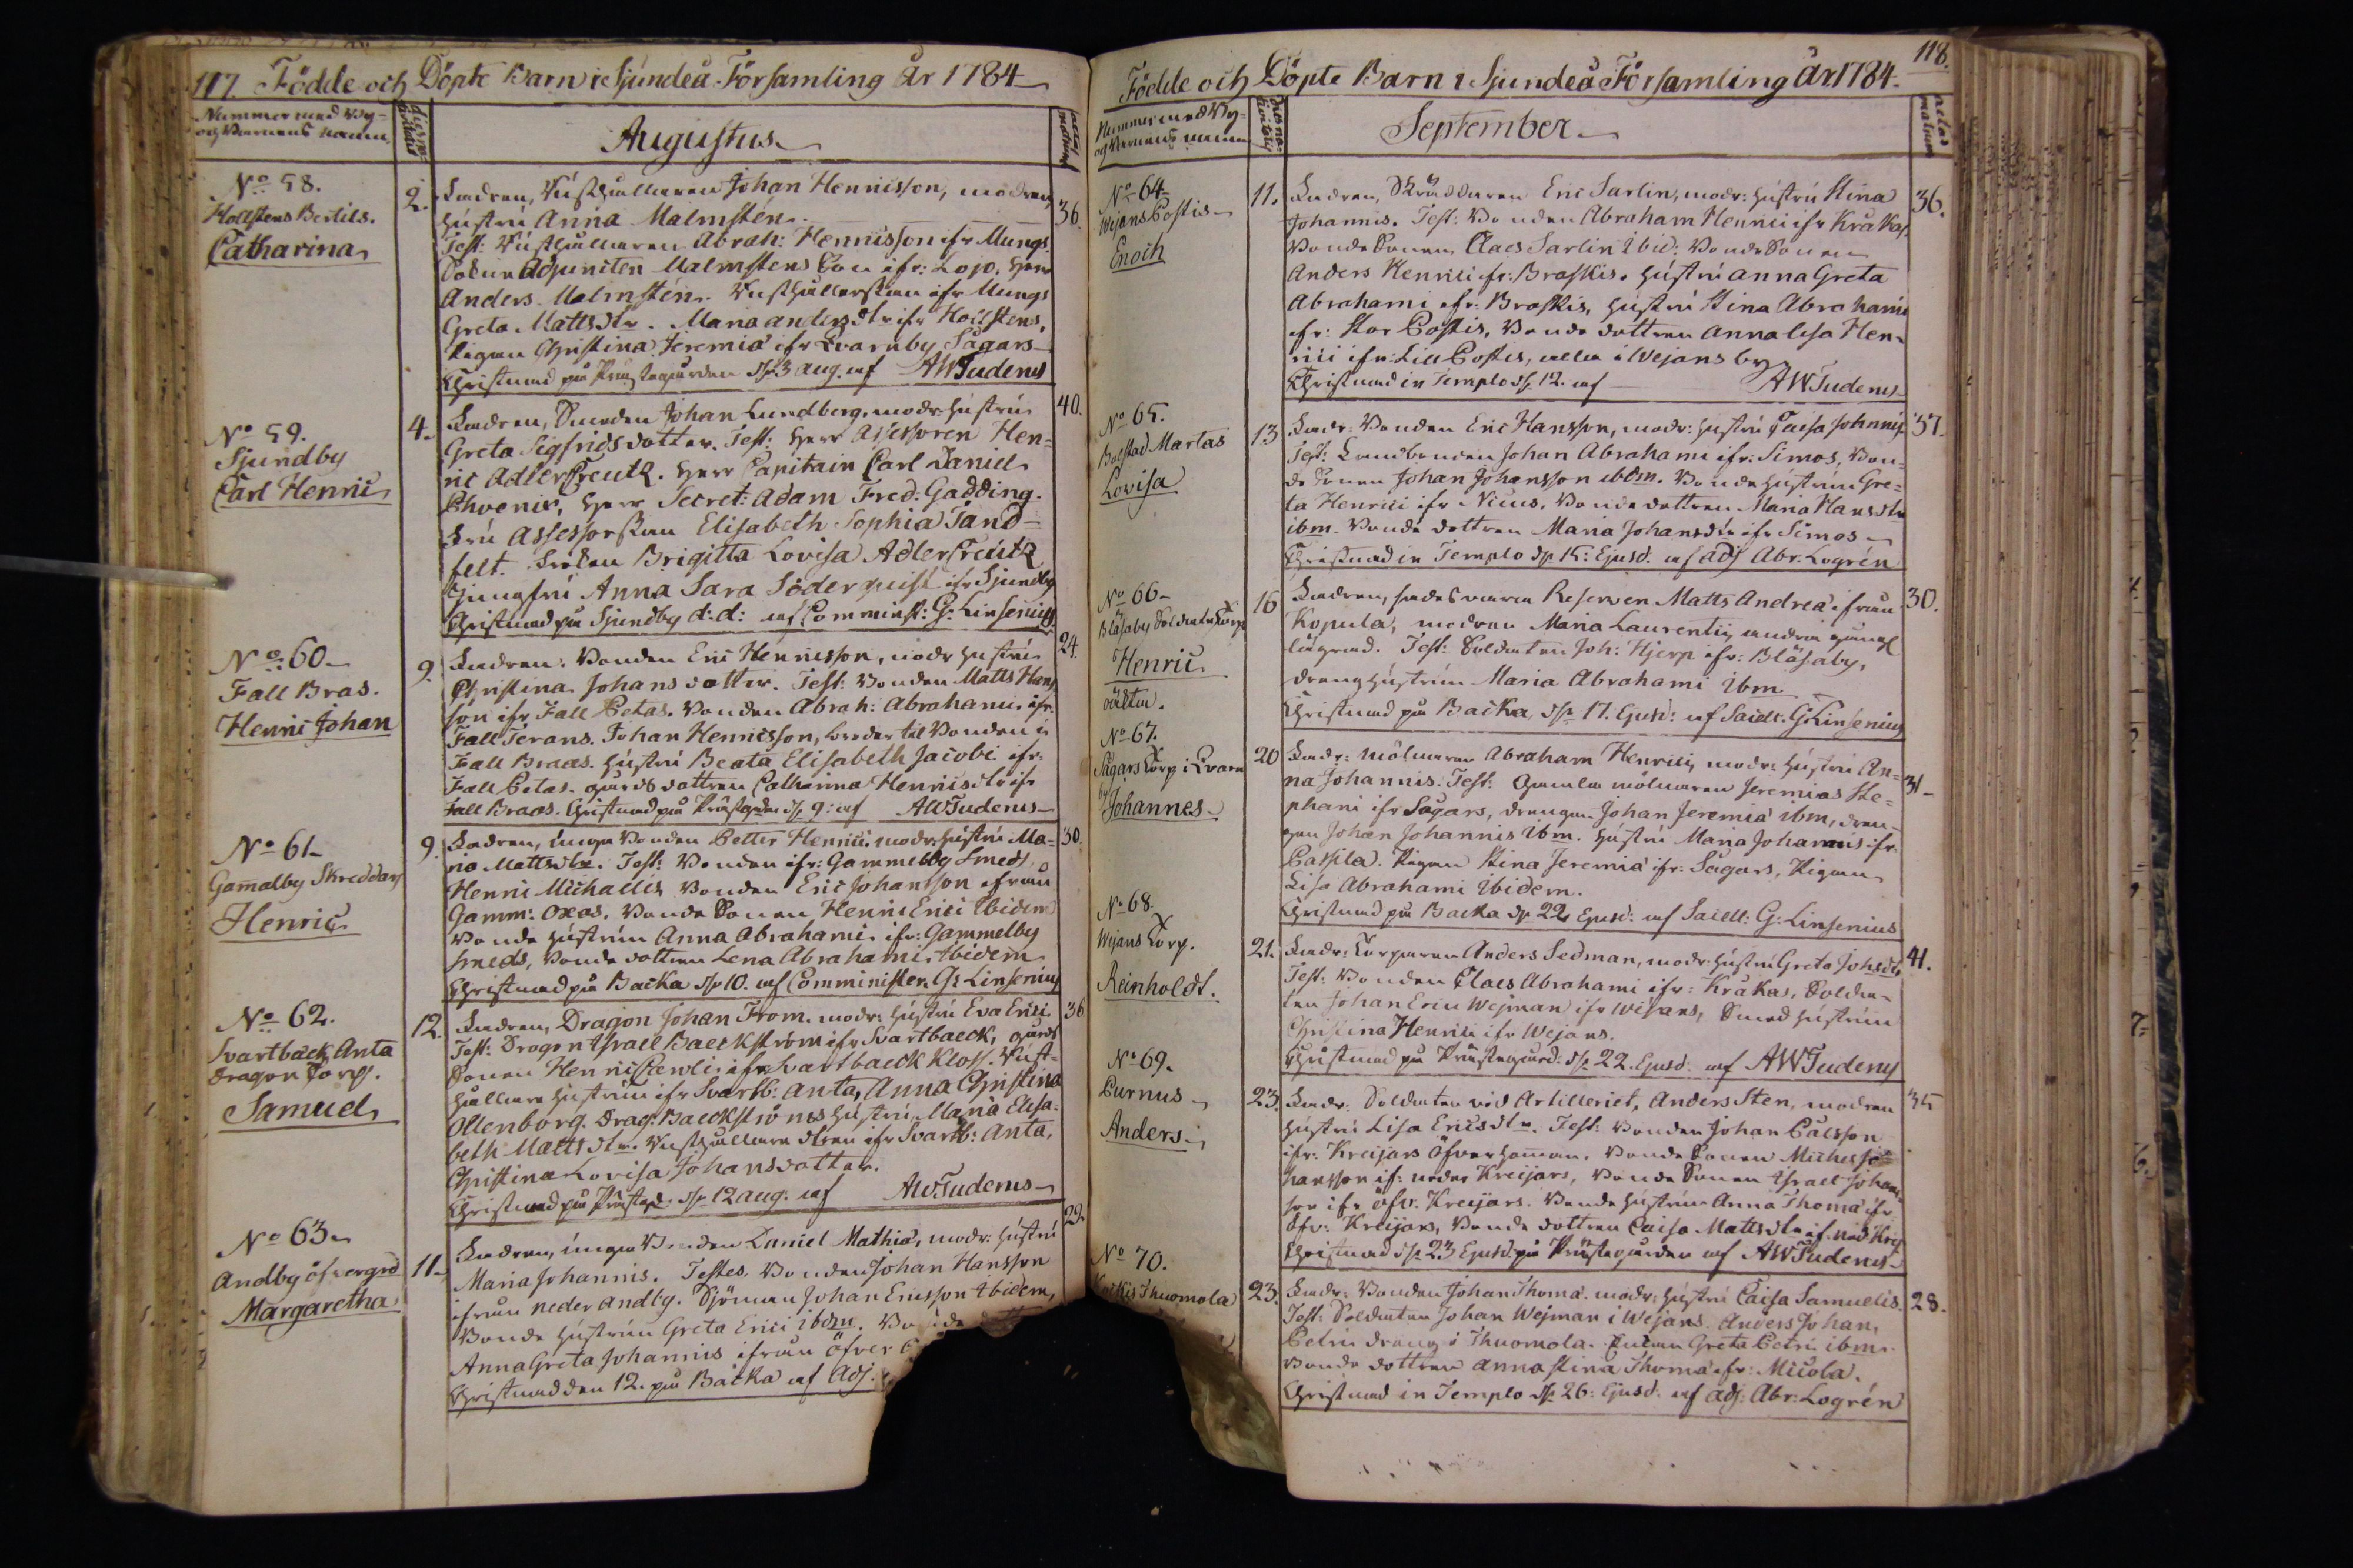 117 Födde och Döpte Barn i Sjundeå Församling år 1784
Nummer med By-
och Barnens namn
Augustus
No 58.
Hollstens Bertils.
Catharina
2.
Fadren, Rusthållaren Johan Henrisson, modren
36.
Hustru Anna Malmstén
Test: Rusthållaren Abrah: Henrisson ifr Mungs
Adjuncten Malmstens Son ifr: Lojo, Herr
Anders Malmstén. Rusthållerskan ifr Mungs
Greta Mattsdtr. Maria andersdtr ifr Hollstens,
Pigan Christina Jeremiæ ifr Qvarnby Sågars
Christnad på Prästegården d. 3 aug. af AWTudenus
No 59.
Sjundby
Carl Henric
4.
Fadren, Smeden Johan Lundberg, modr: Hustru
40.
Greta Sigfridsdotter. Test: Herr Assessoren Hen-
ric Adlercreutz. Herr Capitain Carl Daniel
Phoenix, Herr Secret: Adam Fred: Gadding.
Fru Assessorskan Elisabeth Sophia Tand-
felt. Fröken Brigitta Lovisa Adlercreutz
Jungfru Anna Sara Söderquist ifr Sjundby
Christnad på Sjundby d: d: af Comminist: G: Linsenius
No 60
Fall Bras.
Henric Johan
9.
Fadren: Bonden Eric Henricsson, modr Hustru
24.
Christina Johansdotter. Test: Bonden Matts Hans
son ifr Fall Petas. Bonden Abrah: Abrahami. ifr:
Fall Terans. Johan Henricsson, broder til Bonden i
Fall Braas. Hustru Beata Elisabeth Jacobi ifr:
Fall Petas. gårds dottren Catharina Henricsdtr ifr
Fall Braas. Christnad på Prästgrden d. 9: af AWTudenus
No 61
Gamalby Skreddars
Henric
9.
Fadren, unga Bonden Petter Henrici. modr: Hustru Ma-
30.
ria Mattsdtr. Test: Bonden ifr: Gammelby Smeds,
Henric Michaelis Bonden Eric Johansson ifrån
Gamm: Oxas. Bonde Sonen Henric Erici Ibidem
Bonde Hustrun Anna Abrahami. ifr: Gammelby
Smeds, Bonde dottren Lena Abrahami. Ibidem
Christnad på Backa d. 10. af Comminister G: Linsenius
No 62.
Svartbäck Anta
Dragon Torp.
Samuel
12.
Fadren, Dragon Johan From. modr: Hustru Eva Erici.
36
Test: Dragon Israel Baeckström ifr Svartbaeck, gårds
Sonen Henric Pauli. ifr Svartbaeck Kloss. Rust-
hållare hustrun ifr Svartb: Anta, Anna Christina
Ollenborg. Drag: Baeckströms hustru Maria Elisa-
beth Mattsdtr. Rusthållare dtren ifr Svartb: Anta,
Christina Lovisa Johansdotter.
Christnad på Prästeg: d. 12 aug. af AWTudenus
No 63
Andby öfvergrd
Margaretha
11.
Fadren, unga Bonden Daniel Mathiæ, modr: Hustru
22.
Maria Johannis. Testes. Bonden Johan Hansson
ifrån neder Andby. Sjöman Johan Ericsson Ibidem,
Bonde Hustrun Greta Erici ibdm.
Anna Greta Johannis ifrån Öfver
Christnad den 12. på Backa af Adj.
118.
Födde och Döpte Barn i Sjundeå Församling År 1784.
Nummer med By-
och Barnens namn
September
ætas
matrum
No 64
Wejans Postis
Enoch
11.
Fadren, Skräddaren Eric Sarlin, modr: Hustru Stina
36.
Johannis. Test: Bonden Abraham Henrici ifr Kråkas.
Bonde Sonen Claes Sarlin Ibid: Bonde Sonen
Anders Henrici ifr: Braskis. Hustru Anna Greta
Abrahami ifr: Braskis, Hustru Stina Abrahami
ifr: Stor Postis, Bonde dottren Anna Lisa Hen-
rici ifr: Lill Postis, alla i Wejans by
Christnad in Templo d. 12. af AWTudenus
No 65.
Bolstad Martas
Lovisa
13
Fadr: Bonden Eric Hansson, modr: Hustru Caisa Johannis.
37.
Test: Landbonden Johan Abrahami ifr: Simos, Bon-
de Sonen Johan Johansson ibdm. Bonde hustrun Gre-
ta Henrici ifr Nicus, Bonde dottren Maria Hansdtr
ibm. Bonde dottren Maria Johansdtr ifr Simos
Christnad in Templo d. 15: Ejusd: af adj Abr: Logrén
No 66
Blåsaby Soldate Torp
Henric
oäkta.
16
Fadren, Reserven Matts Andreæ ifrån
30.
Kopula, modren Maria Laurentii, andra gång
lägrad. Test: Soldaten Joh: Hjerp ifr: Blåsaby,
dräng hustrun Maria Abrahami Ibm
Christnad på Backa, d. 17. Ejusd: af Sacell: G: Linsenius
No 67.
Sågars Torp i Qvarn
by
Johannes
20
Fadr: mölnaren Abraham Henrici, modr: Hustru An-
31
na Johannis. Test: Gamla mölnaren Jeremias Ste-
phani ifr Sågars, drengen Johan Jeremiæ ibm, dren-
gen Johan Johannis Ibm. Hustru Maria Johannis ifr:
Passila. Pigan Stina Jeremiæ ifr: Sågars, Pigan
Lisa Abrahami Ibidem.
Christnad på Backa d. 22 Ejusd: af Sacell: G: Linsenius
No 68.
Wijans Torp.
Reinholdt.
21.
Fadr: Torparen Anders Sedman, modr: Hustru Greta Johsdtr
41.
Test: Bonden Claes Abrahami ifr: Kråkas, Solda-
ten Johan Eric Wejman ifr Wejans, Smed hustrun
Christina Henrici ifr Wejans.
Christnad på Prästegård: d. 22. Ejusd: af AWTudenus
No 69.
Purnus
Anders
23.
Fadr: Soldaten vid Artilleriet, Anders Sten, modren
35
Hustru Lisa Ericsdtr. Test: Bonden Johan Pålsson
ifr: Kreijars Öfverhomman. Bonde Sonen Michel Jo-
hansson if: neder Kreijars, Bonde Sonen Israel Johans-
son ifr öfv: Kreijars. Bonde Hustrun Anna Thomæ ifr
Öfv: Kreijars, Bonde dottren Caisa Mattsdtr if. Ned Krej
Christnad d. 23 Ejusd: på Prästegården af AWTudenus
No 70.
Thuomola
23.
Fadr: Bonden Johan Thomæ. modr: Hustru Caisa Samuelis.
28.
Test: Soldaten Johan Wejman i Wejans. Anders Johan,
Petri dräng i Thuomola. Enkan Greta Petri ibm.
Bonde dottren Anna Stina Thomæ ifr: Micola.
Christnad in Templo d. 26: Ejusd: af adj: Abr: Logrén